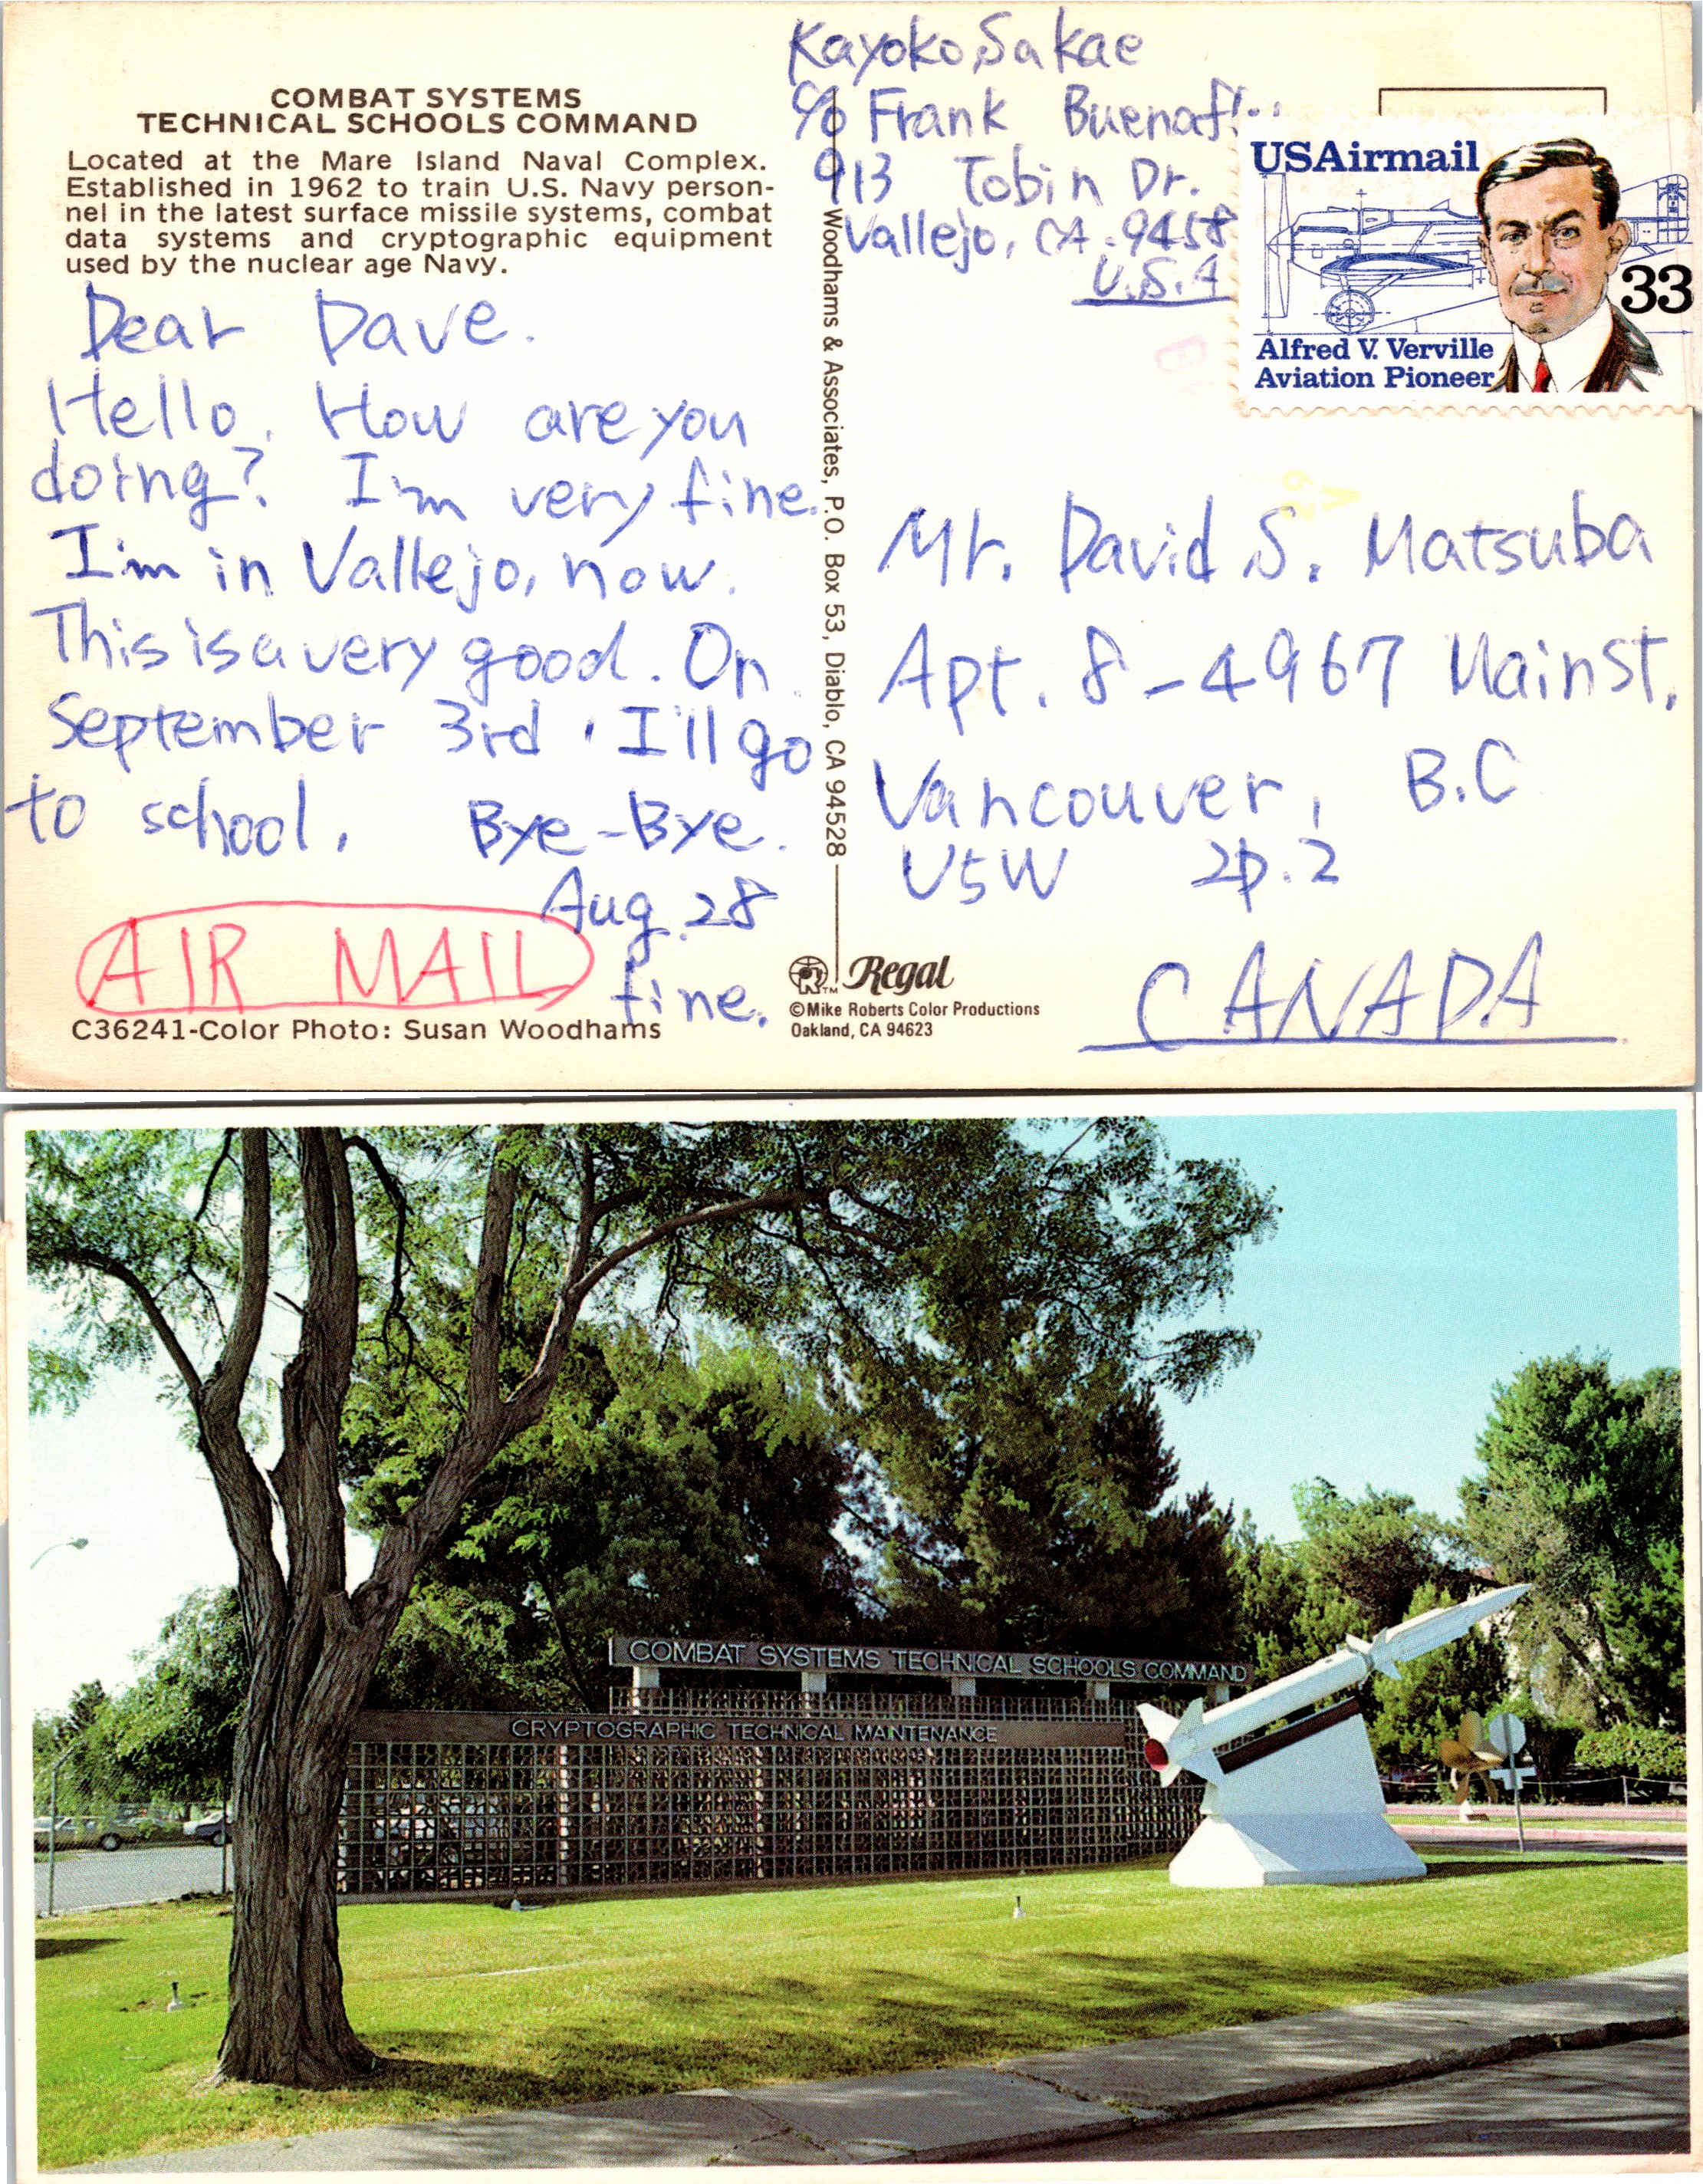 COMBAT SYSTEMS
TECHNICAL SCHOOLS COMMAND
Located at the Mare Island Naval Complex.
Established in 1962 to train U.S. Navy person-
nel in the latest surface missile systems, combat
data systems and cryptographic equipment
used by the nuclear age Navy.
Dear Dave.
Hello. How are you
doing? I'm very fine.
I'm in Vallejo, now.
This is a very good. On
September 3rd. I'll go
to school. Bye-Bye.
Aug. 28
fine.
AIR MAIL
C36241-Color Photo: Susan Woodhams
Woodhams & Associates, P.O. Box 53, Diablo, CA 94528
Regal
©Mike Roberts Color Productions
Oakland, CA 94623
Kayoko Sakae
c/o Frank
913 Tobin Dr.
Vallejo, CA. 9458
U.S.A
USAirmail
33
Alfred V. Verville
Aviation Pioneer
Mr. David S. Matsuba
Apt. 8-4967 Main st.
Vancouver, B.C
V5W 2P.2
CANADA
COMBAT SYSTEMS TECHNICAL SCHOOLS COMMAND
CRYPTOGRAPHIC TECHNICAL MAINTENANCE